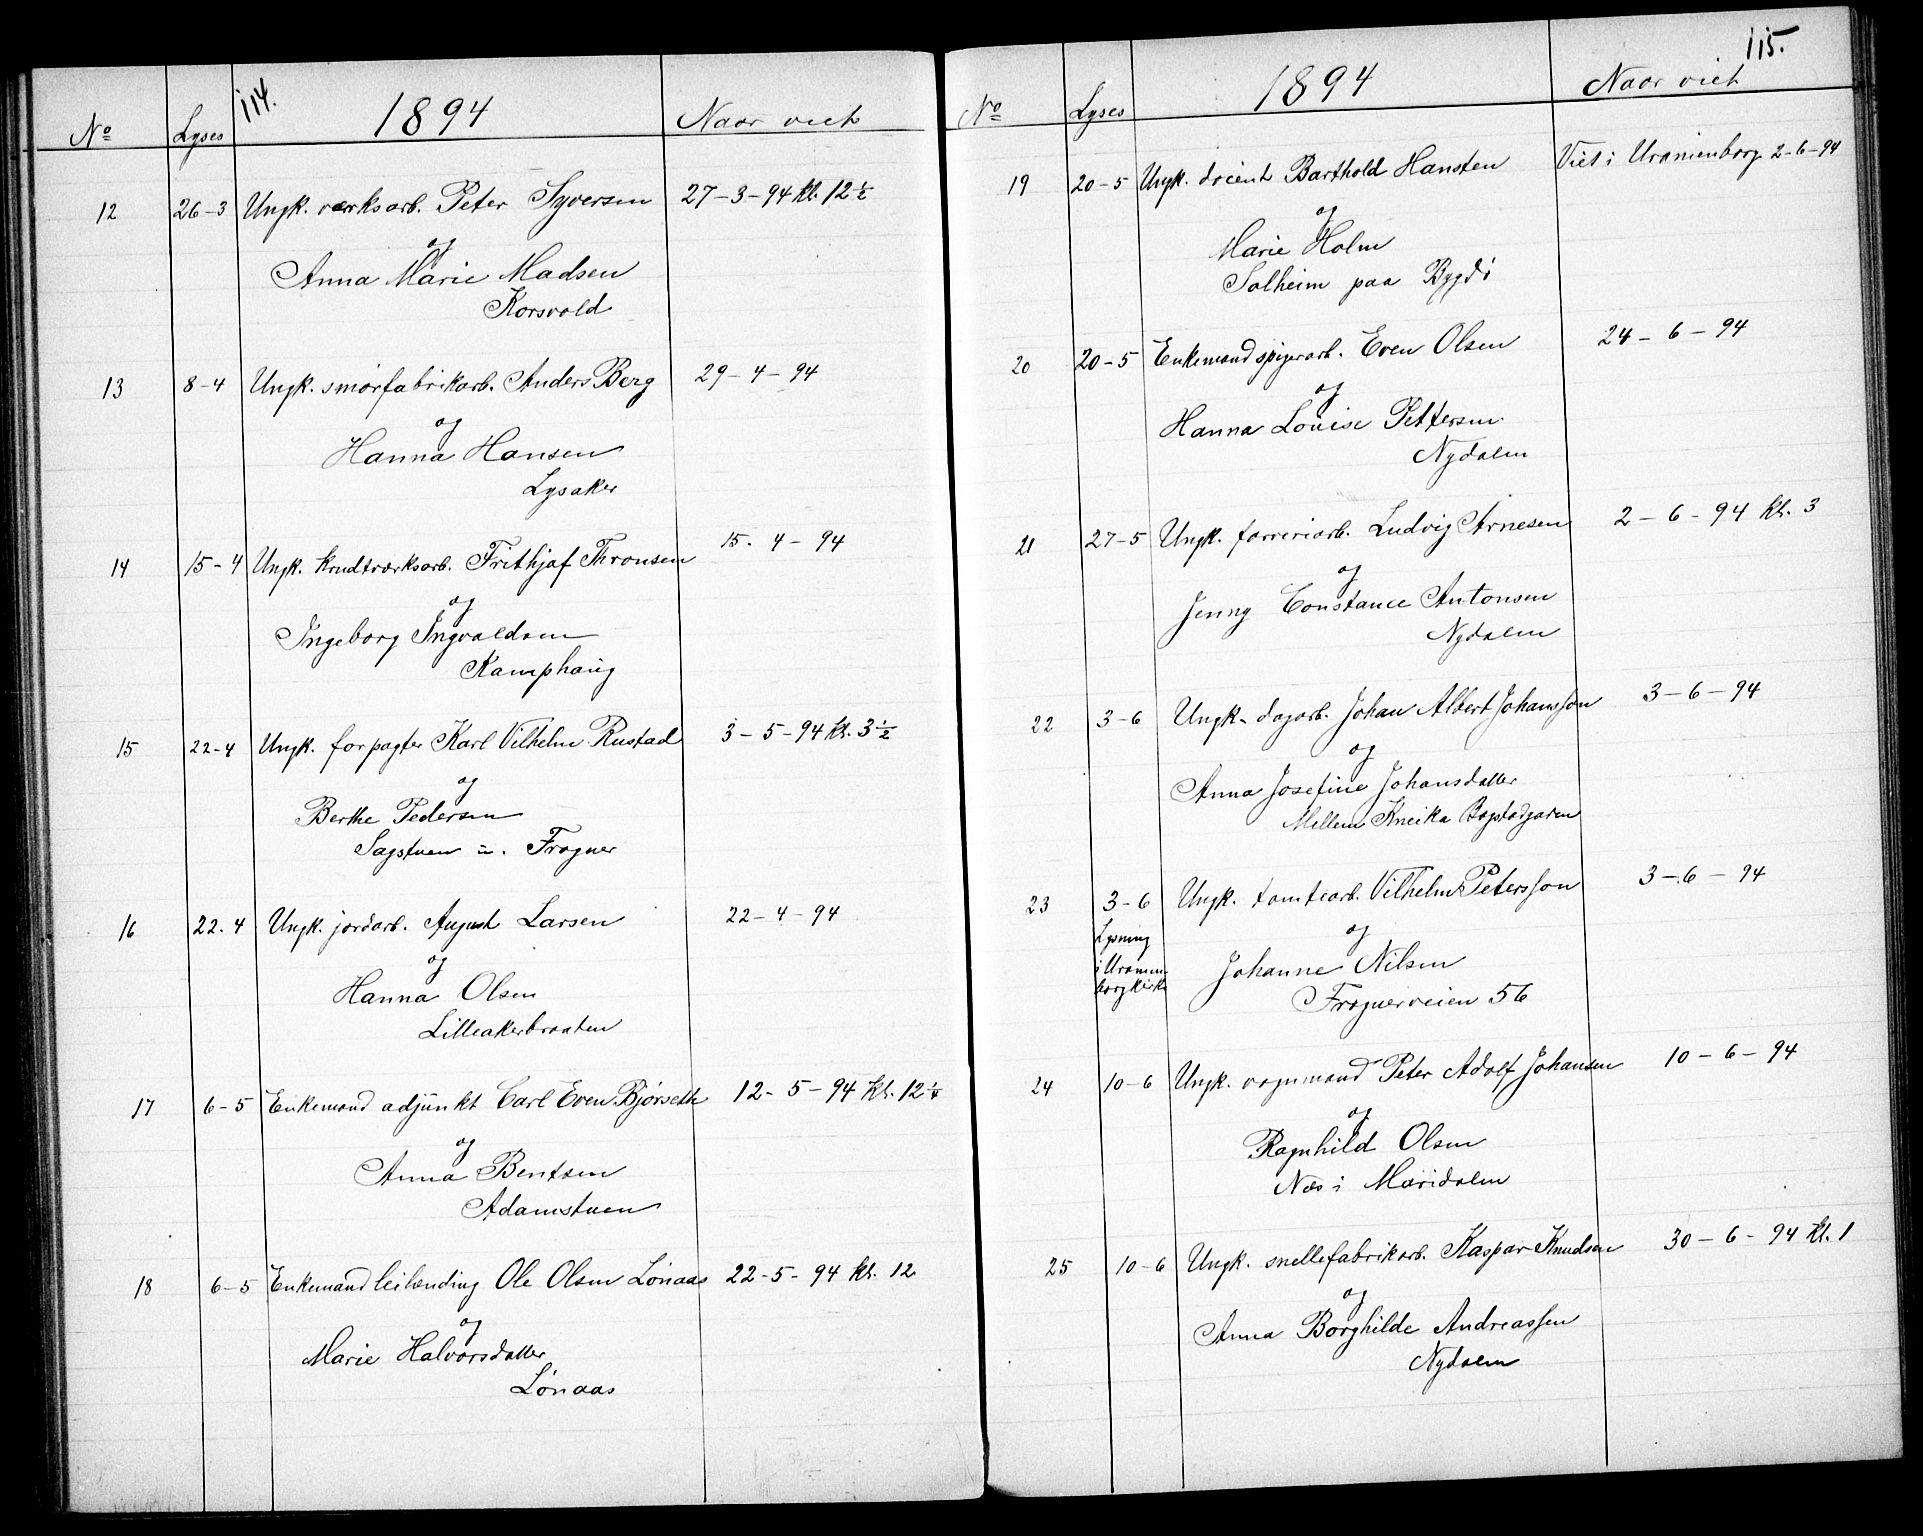 114.
No Lyses 1894 Naar viet
12 26-3 Ungk. værksarb. Peter Syversen 27-3-94 kl. 12½
og
Anna Marie Madsen
Korsvold
13 8-4 Ungk. smørfabrikarb. Anders Berg 29-4-94
og
Hanna Hansen
Lysaker
14 15-4 Ungk. krudtværksarb. Frithjof Thronsen 15.4-94
og
Ingeborg Ingvaldsen
Kamphaug
15 22-4 Ungk. forpagter Karl Vilhelm Rustad 3-5-94 kl. 3½
og
Berthe Pedersen
Sagstuen u. Frogner
16 22.4 Ungk. jordarb. August Larsen 22-4-94
og
Hanna Olsen
Lilleakerbraaten
17 6-5 Enkemand adjunkt Carl Even Bjørseth 12-5-94 kl. 12¼
og
Anna Bentsen
Adamstuen
18 6-5 Enkemand leilending Ole Olsen Lønaas 22-5-94 kl. 12
og
Marie Halvorsdatter
Lønaas
115.
No Lyses 1894 Naar viet
19 20-5 Ungk. docent Barthold Hansten Viet i Uranienborg 2-6-94
og
Marie Holm
Solheim paa Bygdø
20 20-5 Enkemand spigerarb. Even Olsen 24-6-94
og
Hanna Louise Pettersen
Nydalen
21 27-5 Ungk. farveriarb. Ludvig Arnesen 2-6-94 kl. 3
og
Jenny Constance Antonsen
Nydalen
22 3-6 Ungk. dagarb. Johan Albert Johansson 3-6-94
og
Anna Josefine Johansdatter
Mellem Kneika Bogstadgaden
23 3-6 Ungk. tomtearb. Vilhelm Petersson 3-6-94
Lysning
i Uranien-
borg kirke
og
Johanne Nilsen
Frognerveien 56
24 10-6 Ungk. vognmand Peter Adolf Johansen 10-6-94
og
Ragnhild Olsen
Næs i Maridalen
25 10-6 Ungk. snellefabrikarb. Kaspar Knudsen 30-6-94 kl. 1
og
Anna Borghilde Andreassen
Nydalen